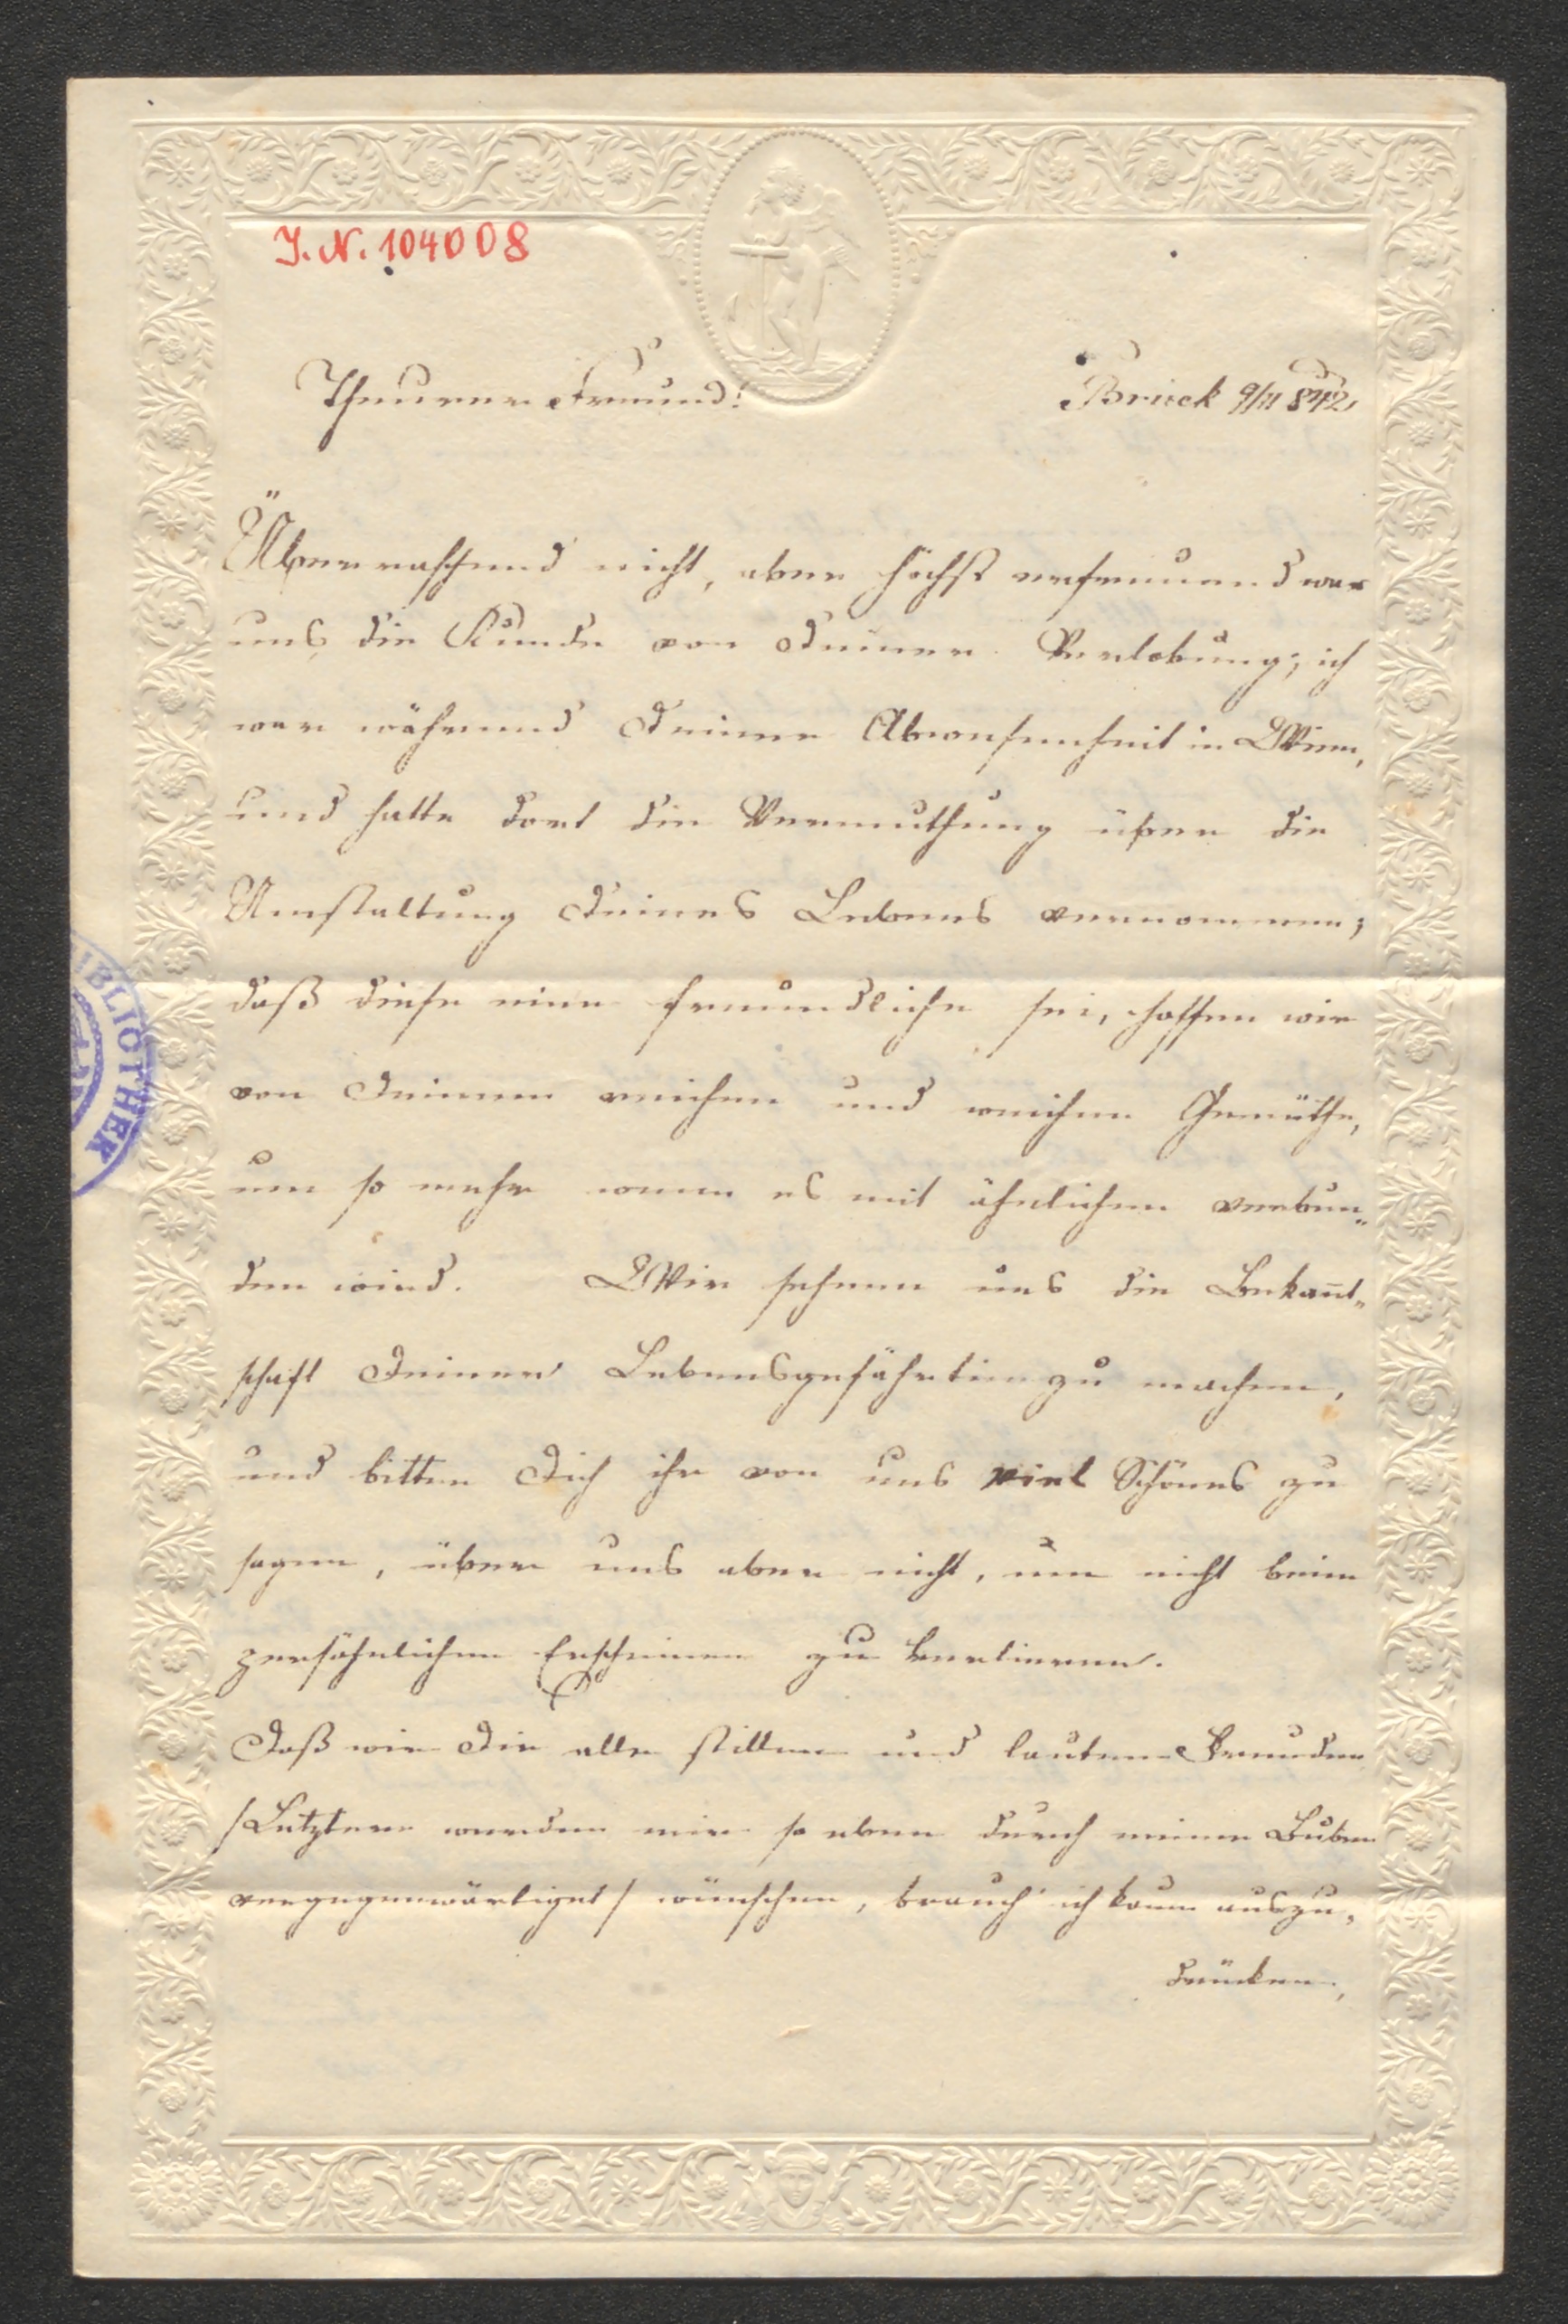 J. N. 104008
Theurer Freund!
Bruck 9/11 842
Überraschend nicht, aber höchst erfreuend war
uns die Kunde von Deiner Verlobung; ich
war während Deiner Abwesenheit in Wien,
und hatte dort die Vermuthung über die
Umstaltung Deines Lebens vernommen;
daß diese eine freundliche sei, hoffen wir
von Deinem reichen und weichen Gemüthe,
um so mehr wenn es mit ähnlichem verbun„
den wird. Wir sehnen uns die Bekañt„
schaft Deiner Lebensgefährtin zu machen,
und bitten Dich ihr von uns viel Schönes zu
sagen, über uns aber nicht, um nicht beim
persöhnlichen Erscheinen zu verlieren.
Daß wir Dir alle stillen und lauten Freuden
/Letztere werden mir so eben durch meinen Buben
vergegenwärtiget/ wünschen, brauch' ich kaum auszu„
drücken,
BIBLIOTHEK